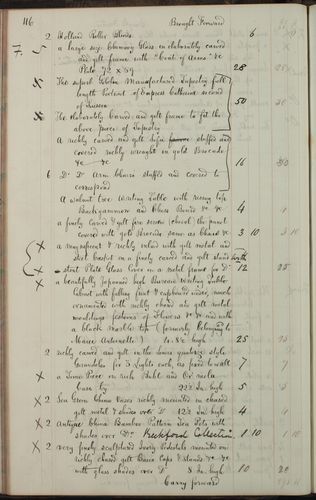 116 Brought Forward
2 Holland Roller Blinds 6
7. a large size Chimney Glass in elaborately carved
and gilt frame with "Coat of Arms" &c
Plate 72 x 59 28
The superb Gobelin Manufactured Tapestry full
length Portrait of Empress Catherine second
of Russia 50
The elaborately Carved and gilt frame to fit the
above piece of Tapestry
A richly carved and gilt Sofa stuffed and
covered richly wrought in gold Brocade
&c &c 16
6 Do Do Arm Chairs stuffed and covered to
correspond
A walnut tree Writing Table with rising top
Backgammon and Chess Boards &c &c 4
a finely carved & gilt fire screen (cheval) the panel
covered with gold Brocade same as chairs &c 3 10
x a magnificent & richly inlaid with gilt metal and
steel basket in a finely carved and gilt stand with
x stout Plate Glass Cover in a metal frame for Do 12
x a beautifully japanned high Bureau Writing Table
Cabinet with falling front & cupboard under, much
ornamented with richly chased and gilt metal
mouldings festoons of Flowers &c &c and with
a black marble top (formerly belonging to
Marie Antoinette) 4. 8½ high 25
2 richly carved and gilt in the Louis quatorze style
Girandoles for 3 Lights each, as fixed to wall 7
x a Time Piece in Rich Buhl and Or molu
Case by 22½ In. high 5
x 2 Sea Green China Vases richly mounted in chased
gilt metal & shades over Do 12½ In high 4
x 2 antique China Bamboo Pattern Tea Pots with
shades over Do Beckford Collection. 1 10
x 2 very finely sculptured Ivory Pedestals mounted on
richly chased gilt Brass Caps & stands &c &c
with glass shades over Do 8 In. high 10
Carry forward